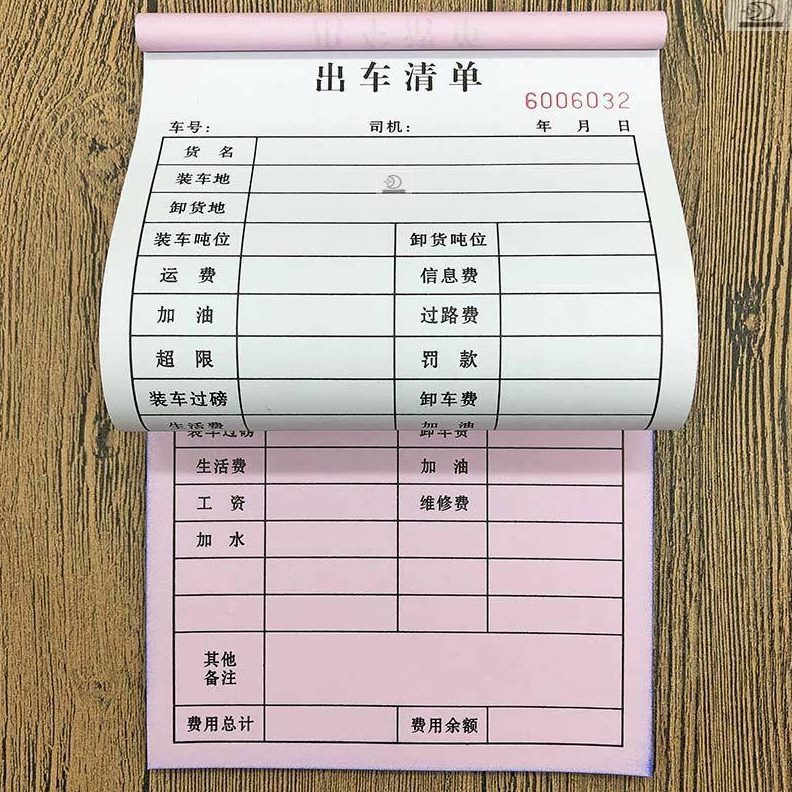 出车清单
6006032
车号： 司机： 年 月 日
货 名
装车地
卸货地
装车吨位 卸货吨位
运 费 信息费
加 油 过路费
超 限 罚 款
装车过磅 卸车费
生活费 加 油
装车过磅 卸车费
生活费 加 油
工 资 维修费
加 水
其他
备注
费用总计 费用余额